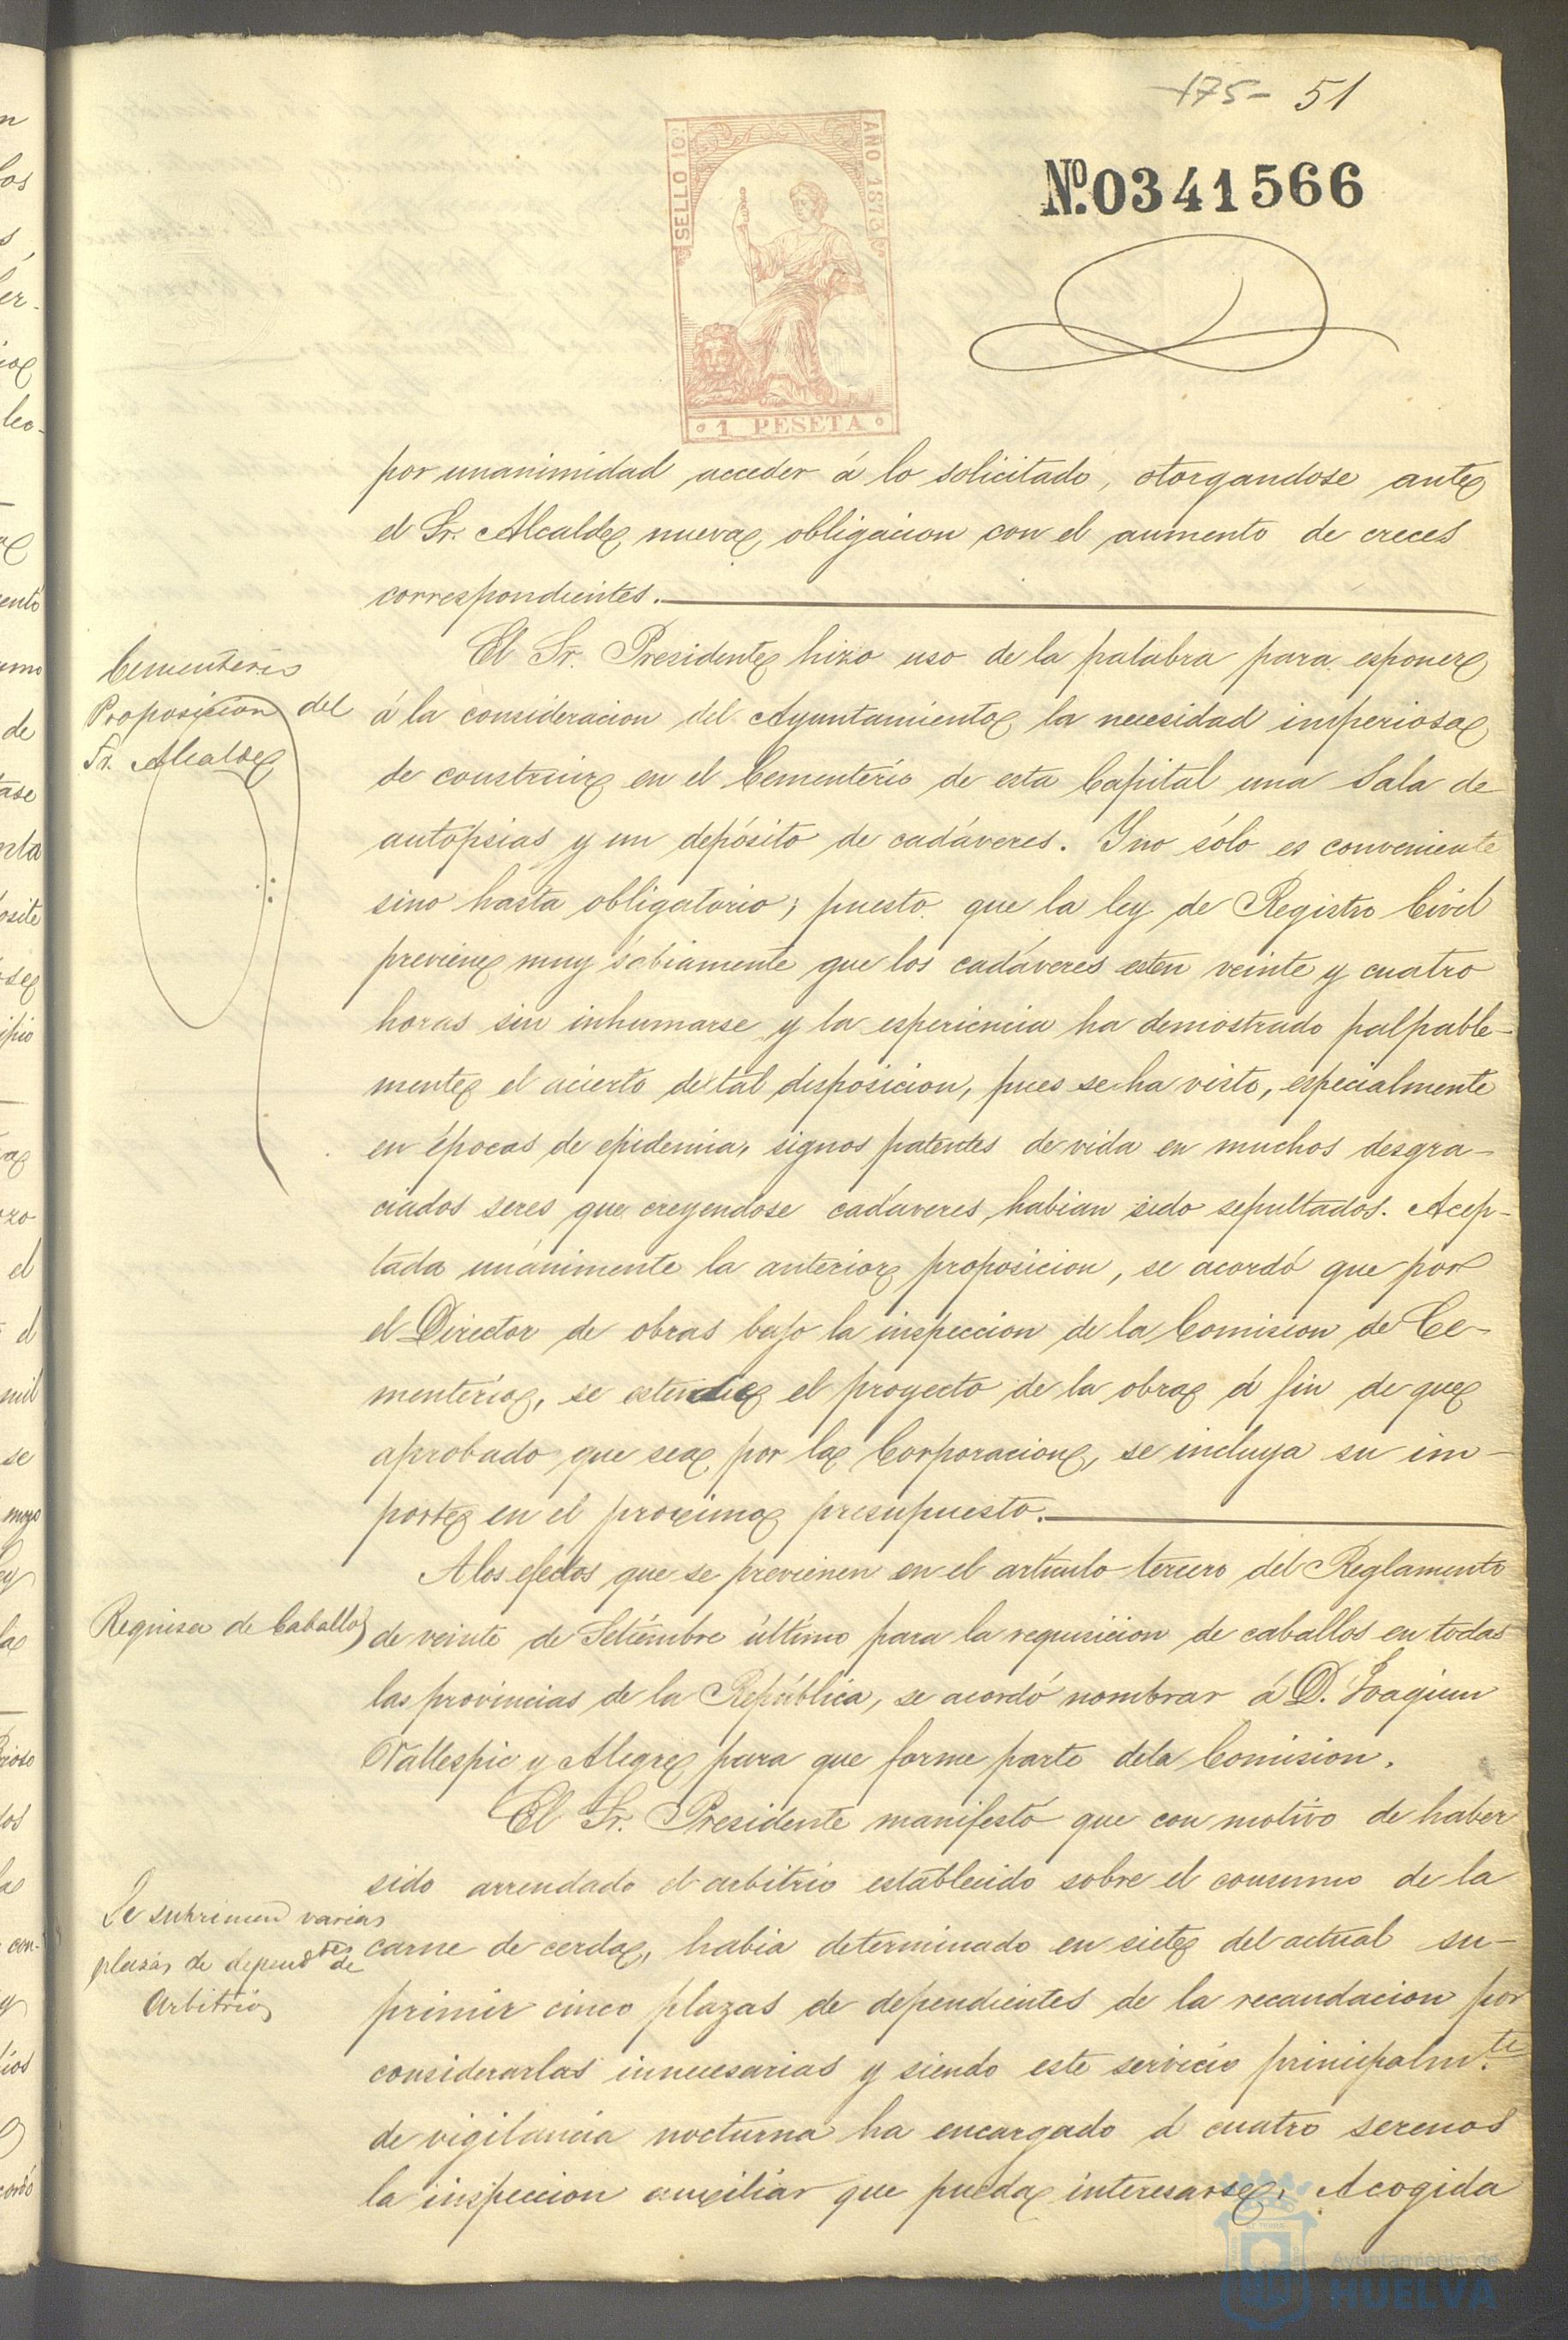 175- 51
SELLO 10º
AÑO 1873
Nº 0341566
1 PESETA
por unanimidad acceder á lo solicitado, otorgandose ante
el Sr. Alcalde nueva obligacion con el aumento de creces
correspondientes.
Cementerio
Proposicion del
Sr. Alcalde
El Sr. Presidente hizo uso de la palabra para esponer
á la consideracion del Ayuntamiento la necesidad imperiosa
de construir en el Cementerio de esta Capital una Sala de
autópsias y un depósito de cadáveres. Y no sólo es conveniente
sino hasta obligatorio, puesto que la ley de Registro Civil
previene muy sábiamente que los cadáveres esten veinte y cuatro
horas sin inhumarse y la esperiencia ha demostrado palpable-
mente el acierto de tal disposicion, pues se ha visto, especialmente
en épocas de epidemia, signos patentes de vida en muchos desgra-
ciados seres que creyendose cadáveres, habian sido sepultados. Acep-
tada unánimente la anterior proposicion, se acordó que por
el Director de obras bajo la inspeccion de la Comision de Ce-
menterio, se estendie el proyecto de la obra á fin de que
aprobado que sea por la Corporacion, se incluya su im-
porte en el proximo presupuesto.
Requisa de Caballos
A los efectos que se previenen en el artículo tercero del Reglamento
de veinte de Setiembre último para la requisicion de caballos en todas
las provincias de la República, se acordó nombrar á D. Joaquin
Vallespin y Alegre para que forme parte de la Comision.
Se suprimen varias
plazas de depend.tes de
Arbitrios
El Sr. Presidente manifestó que con motivo de haber
sido arrendado el arbitrio establecido sobre el consumo de la
carne de cerda, habia determinado en siete del actual su-
primir cinco plazas de dependientes de la recaudacion por
considerarlas innecesarias y siendo este servicio principalm.te
de vigilancia nocturna ha encargado á cuatro serenos
la inspeccion auxiliar que pueda interesarse. Acogida
Ayuntamiento de
HUELVA